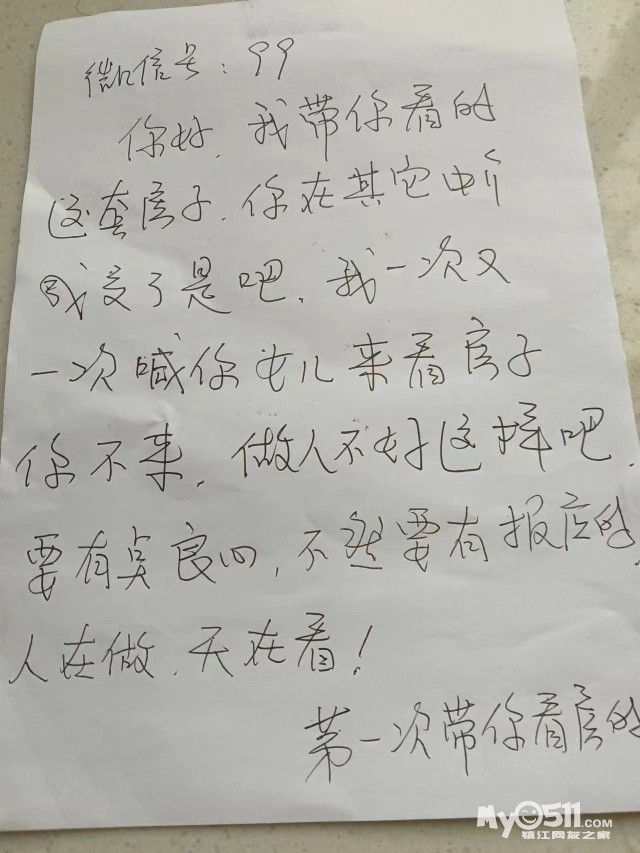 微信号：99
你好，我带你看的
这套房子，你在其它中介
成交了是吧，我一次又
一次喊你女儿来看房子
你不来，做人不好这样吧，
要有点良心，不然要有报应的，
人在做，天在看！
第一次带你看房的
My0511.com
镇江网友之家